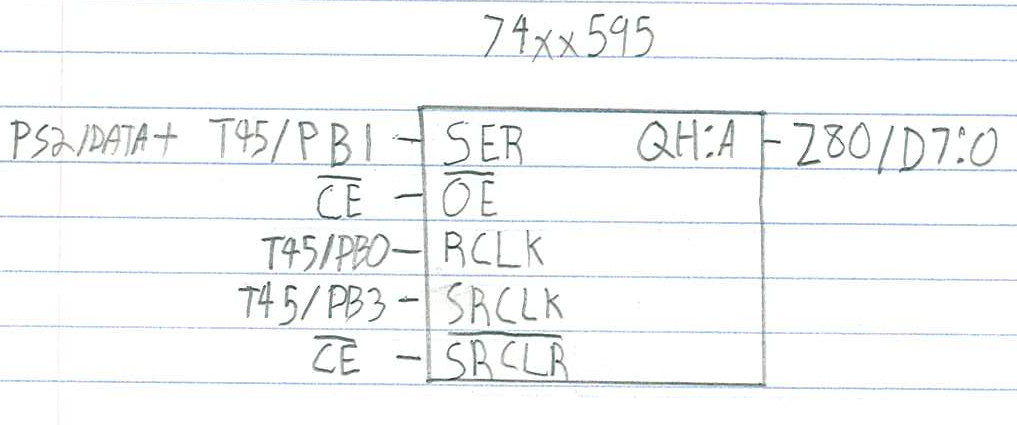 74xx595
PS2/DATA+ T45/PB1 - SER QH:A - Z80/D7:0
C̅E̅ - O̅E̅
T45/PB0 - RCLK
T45/PB3 - SRCLK
C̅E̅ - S̅R̅C̅L̅R̅